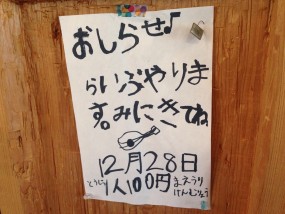 おしらせ♪
らいぶやりま
す。みにきてね。
12月28日
とうじつ 1人100円 まえうり
けんじゅう